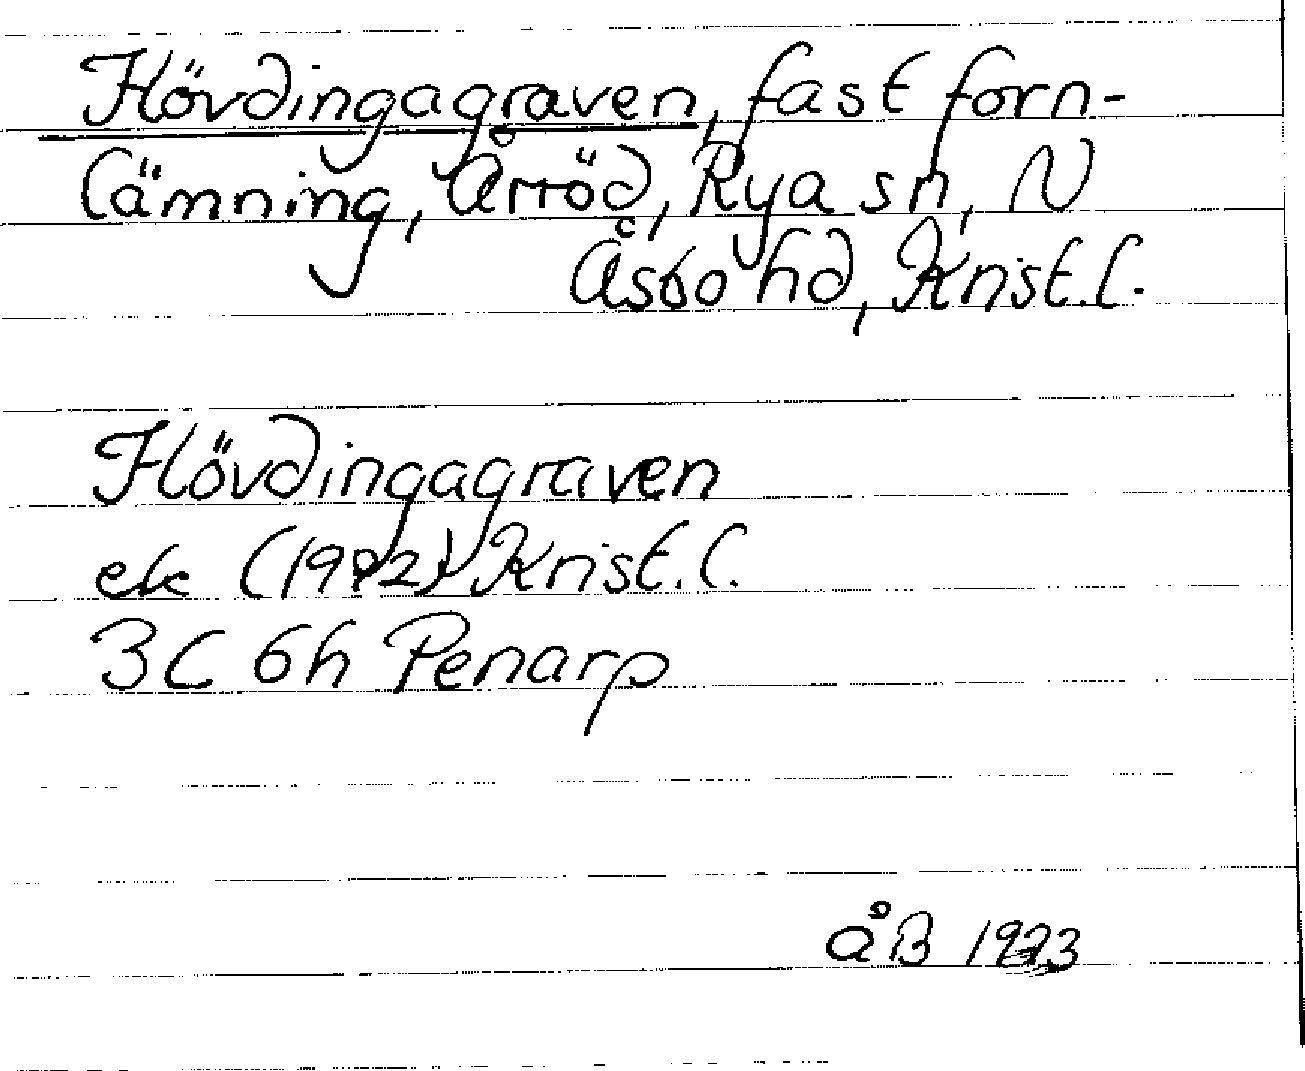 Hövdingagraven, fast forn-
lämning, Årröd, Rya sn, N
Åsbo hd, Krist. l.
Hövdingagraven
ek (1972) Krist. l.
3C 6h Penarp
åB 1973